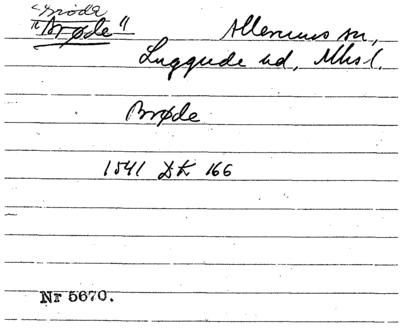 <Bröda
"Brøde"
Allerums sn,
Luggude hd, Mhs l.
Brøde
1541 DK 166
Nr 5670.